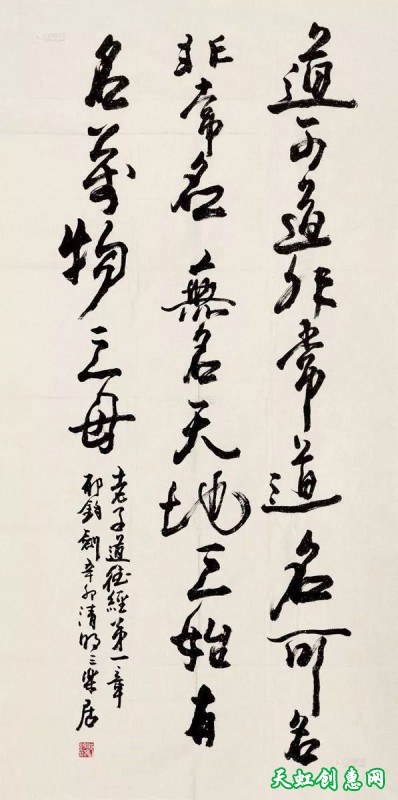 道可道非常道名可名
非常名無名天地之始有
名萬物之母
老子道德經第一章
郁鈞劍辛卯清明三樂居
天虹创惠网